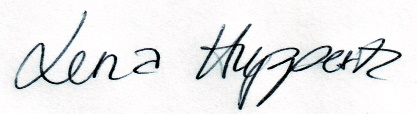 Lena Huppertz